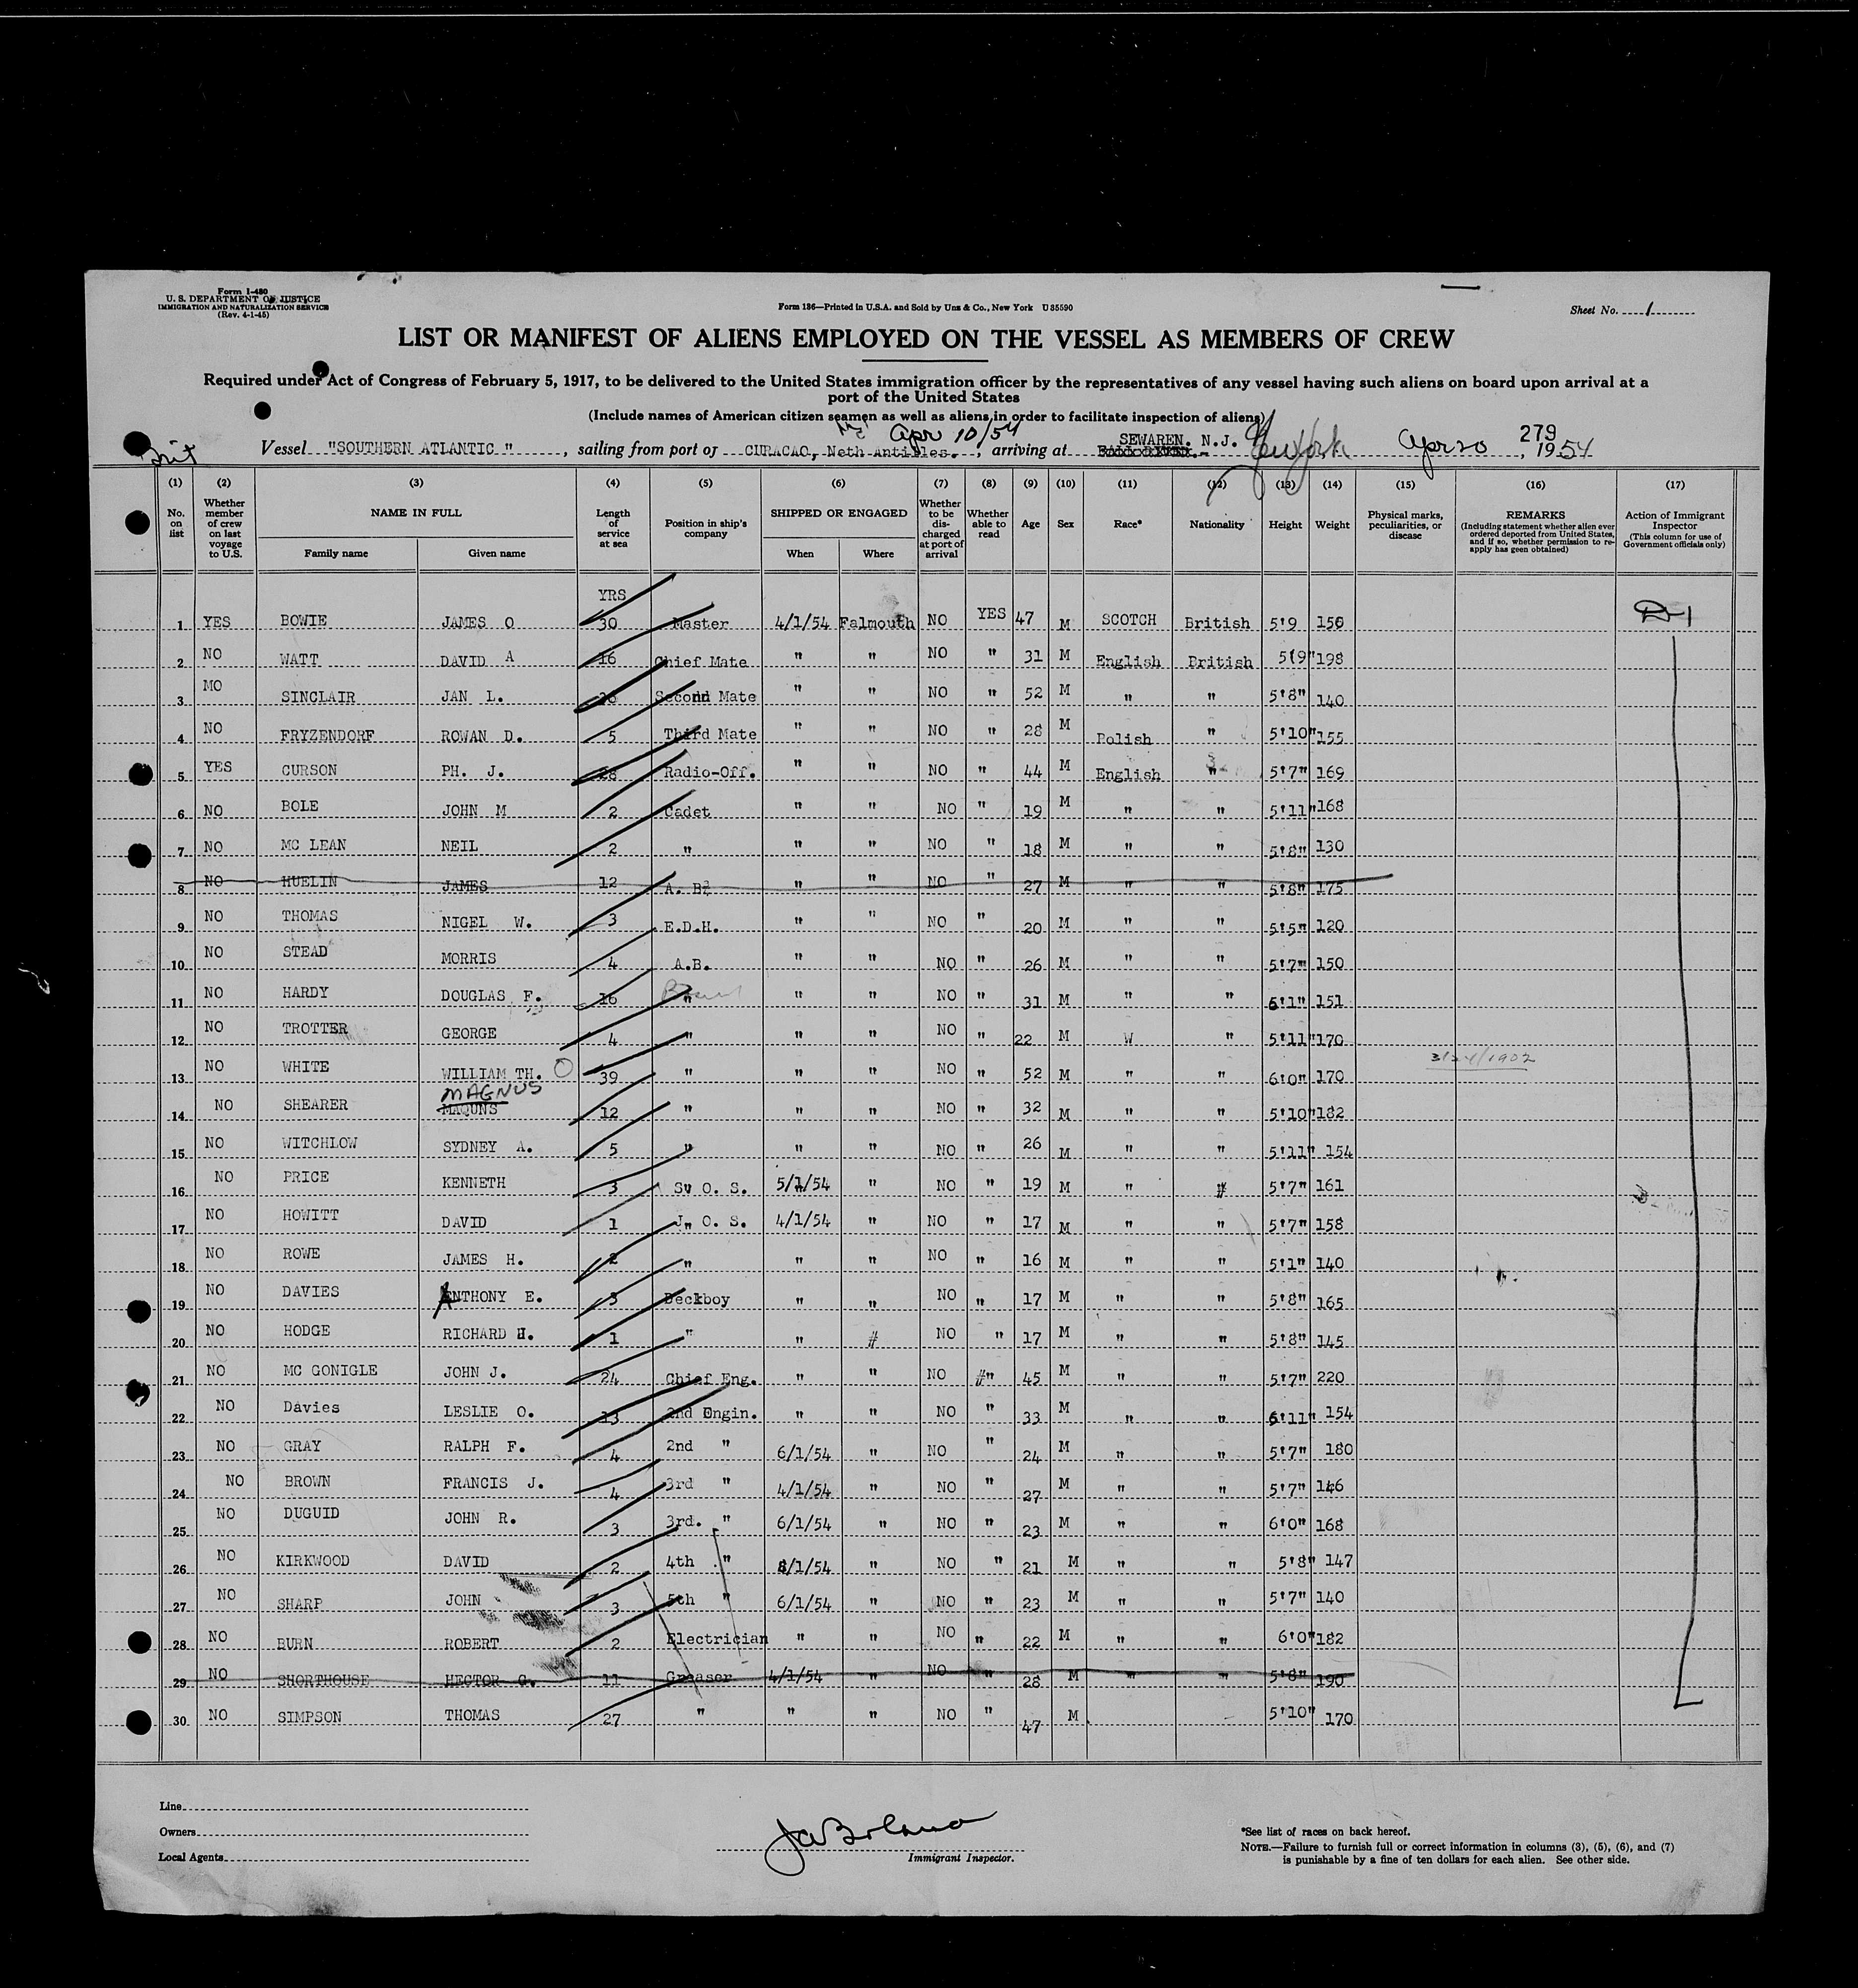 Form I-480
U. S. DEPARTMENT OF JUSTICE
IMMIGRATION AND NATURALIZATION SERVICE
(Rev. 4-1-45)
Form 186—Printed in U.S.A. and Sold by Unz & Co., New York U 35590
Sheet No. 1
LIST OR MANIFEST OF ALIENS EMPLOYED ON THE VESSEL AS MEMBERS OF CREW
Required under Act of Congress of February 5, 1917, to be delivered to the United States immigration officer by the representatives of any vessel having such aliens on board upon arrival at a
port of the United States
(Include names of American citizen seamen as well as aliens in order to facilitate inspection of aliens)
Apr 10/54
SEWAREN. N.J. New York 279
Brit Vessel "SOUTHERN ATLANTIC", sailing from port of CURACAO, Neth Antilles., arriving at Apr 20, 1954
(1) (2) (3) (4) (5) (6) (7) (8) (9) (10) (11) (12) (13) (14) (15) (16) (17)
No. on list Whether member of crew on last voyage to U.S. NAME IN FULL Family name Given name Length of service at sea Position in ship's company SHIPPED OR ENGAGED When Where Whether to be discharged at port of arrival Whether able to read Age Sex Race* Nationality Height Weight Physical marks, peculiarities, or disease REMARKS (Including statement whether alien ever ordered deported from United States, and if so, whether permission to re-apply has geen obtained) Action of Immigrant Inspector (This column for use of Government officials only)
YRS
1 YES BOWIE JAMES O 30 Master 4/1/54 Falmouth NO YES 47 M SCOTCH British 5'9 156
2 NO WATT DAVID A 16 Chief Mate " " NO " 31 M English British 5'9" 198
3 MO SINCLAIR JAN L. Second Mate " " NO " 52 M " " 5'8" 140
4 NO FRYZENDORF ROWAN D. 5 Third Mate " " NO " 28 M Polish " 5'10" 155
5 YES CURSON PH. J. 28 Radio-Off. " " NO " 44 M English " 5'7" 169
6 NO BOLE JOHN M 2 Cadet " " NO " 19 M " " 5'11" 168
7 NO MC LEAN NEIL 2 " " " NO " 18 M " " 5'8" 130
8 NO HUELIN JAMES 12 A. B. " " NO " 27 M " " 5'8" 175
9 NO THOMAS NIGEL W. 3 E.D.H. " " NO " 20 M " " 5'5" 120
10 NO STEAD MORRIS 4 A.B. " " NO " 26 M " " 5'7" 150
11 NO HARDY DOUGLAS F. 16 " " " NO " 31 M " " 6'1" 151
12 NO TROTTER GEORGE 4 " " " NO " 22 M W " 5'11" 170
13 NO WHITE WILLIAM TH. 39 " " " NO " 52 M " " 6'0" 170 3/24/1902
14 NO SHEARER MAQUNS MAGNUS 12 " " " NO " 32 M " " 5'10" 182
15 NO WITCHLOW SYDNEY A. 5 " " " NO " 26 M " " 5'11" 154
16 NO PRICE KENNETH 3 S. O. S. 5/1/54 " NO " 19 M " " 5'7" 161
17 NO HOWITT DAVID 1 J. O. S. 4/1/54 " NO " 17 M " " 5'7" 158
18 NO ROWE JAMES H. 2 " " " NO " 16 M " " 5'1" 140
19 NO DAVIES ANTHONY E. 3 Deckboy " " NO " 17 M " " 5'8" 165
20 NO HODGE RICHARD H. 1 " " # NO " 17 M " " 5'8" 145
21 NO MC GONIGLE JOHN J. 24 Chief Eng. " " NO #" 45 M " " 5'7" 220
22 NO Davies LESLIE O. 13 2nd Engin. " " NO " 33 M " " 6'11" 154
23 NO GRAY RALPH F. 4 2nd " 6/1/54 " NO " 24 M " " 5'7" 180
24 NO BROWN FRANCIS J. 4 3rd " 4/1/54 " NO " 27 M " " 5'7" 146
25 NO DUGUID JOHN R. 3 3rd. " 6/1/54 " NO " 23 M " " 6'0" 168
26 NO KIRKWOOD DAVID 2 4th " 8/1/54 " NO " 21 M " " 5'8" 147
27 NO SHARP JOHN 3 5th " 6/1/54 " NO " 23 M " " 5'7" 140
28 NO BURN ROBERT 2 Electrician " " NO " 22 M " " 6'0" 182
29 NO SHORTHOUSE HECTOR G. 11 Greaser 4/1/54 " NO " 28 M " " 5'8" 190
30 NO SIMPSON THOMAS 27 " " " NO " 47 M 5'10" 170
Line
Owners
Local Agents
Immigrant Inspector.
*See list of races on back hereof.
NOTE.—Failure to furnish full or correct information in columns (3), (5), (6), and (7)
is punishable by a fine of ten dollars for each alien. See other side.